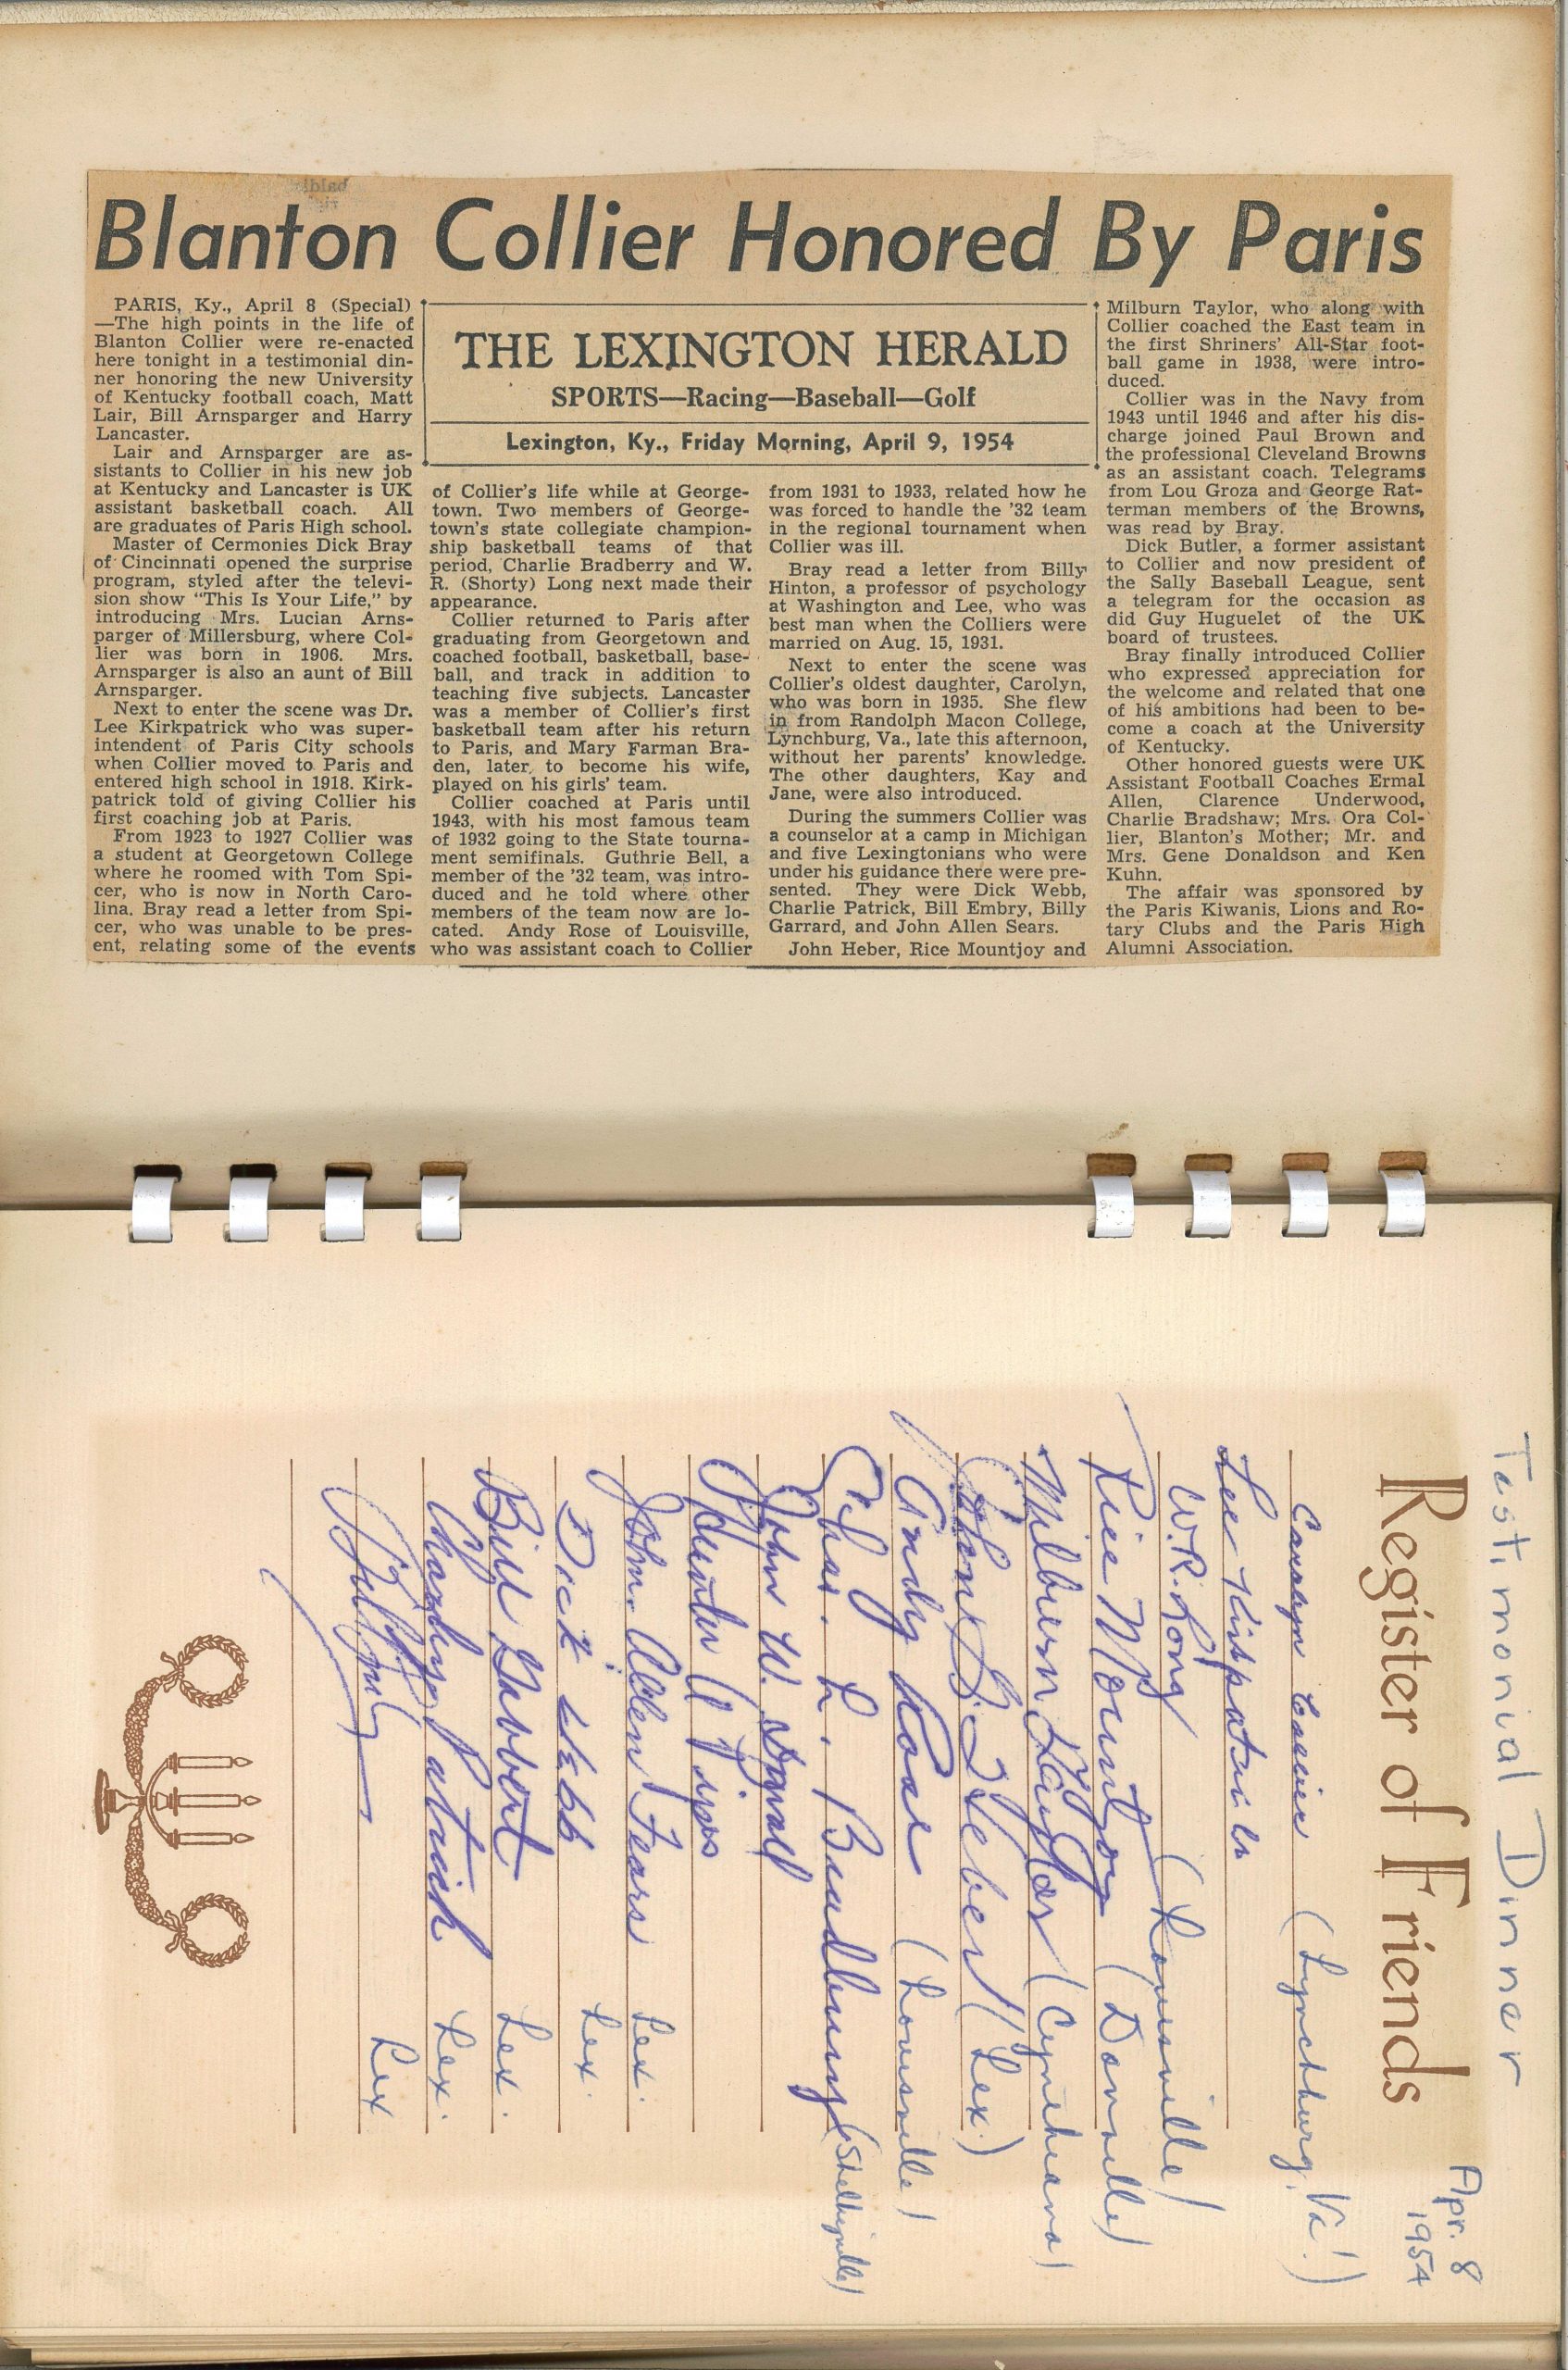 Blanton Collier Honored By Paris
PARIS, Ky., April 8 (Special)
—The high points in the life of
Blanton Collier were re-enacted
here tonight in a testimonial din-
ner honoring the new University
of Kentucky football coach, Matt
Lair, Bill Arnsparger and Harry
Lancaster.
Lair and Arnsparger are as-
sistants to Collier in his new job
at Kentucky and Lancaster is UK
assistant basketball coach. All
are graduates of Paris High school.
Master of Cermonies Dick Bray
of Cincinnati opened the surprise
program, styled after the televi-
sion show "This Is Your Life," by
introducing Mrs. Lucian Arns-
parger of Millersburg, where Col-
lier was born in 1906. Mrs.
Arnsparger is also an aunt of Bill
Arnsparger.
Next to enter the scene was Dr.
Lee Kirkpatrick who was super-
intendent of Paris City schools
when Collier moved to Paris and
entered high school in 1918. Kirk-
patrick told of giving Collier his
first coaching job at Paris.
From 1923 to 1927 Collier was
a student at Georgetown College
where he roomed with Tom Spi-
cer, who is now in North Caro-
lina. Bray read a letter from Spi-
cer, who was unable to be pres-
ent, relating some of the events
THE LEXINGTON HERALD
SPORTS—Racing—Baseball—Golf
Lexington, Ky., Friday Morning, April 9, 1954
of Collier's life while at George-
town. Two members of George-
town's state collegiate champion-
ship basketball teams of that
period, Charlie Bradberry and W.
R. (Shorty) Long next made their
appearance.
Collier returned to Paris after
graduating from Georgetown and
coached football, basketball, base-
ball, and track in addition to
teaching five subjects. Lancaster
was a member of Collier's first
basketball team after his return
to Paris, and Mary Farman Bra-
den, later, to become his wife,
played on his girls' team.
Collier coached at Paris until
1943, with his most famous team
of 1932 going to the State tourna-
ment semifinals. Guthrie Bell, a
member of the '32 team, was intro-
duced and he told where other
members of the team now are lo-
cated. Andy Rose of Louisville,
who was assistant coach to Collier
from 1931 to 1933, related how he
was forced to handle the '32 team
in the regional tournament when
Collier was ill.
Bray read a letter from Billy
Hinton, a professor of psychology
at Washington and Lee, who was
best man when the Colliers were
married on Aug. 15, 1931.
Next to enter the scene was
Collier's oldest daughter, Carolyn,
who was born in 1935. She flew
in from Randolph Macon College,
Lynchburg, Va., late this afternoon,
without her parents' knowledge.
The other daughters, Kay and
Jane, were also introduced.
During the summers Collier was
a counselor at a camp in Michigan
and five Lexingtonians who were
under his guidance there were pre-
sented. They were Dick Webb,
Charlie Patrick, Bill Embry, Billy
Garrard, and John Allen Sears.
John Heber, Rice Mountjoy and
Milburn Taylor, who along with
Collier coached the East team in
the first Shriners' All-Star foot-
ball game in 1938, were intro-
duced.
Collier was in the Navy from
1943 until 1946 and after his dis-
charge joined Paul Brown and
the professional Cleveland Browns
as an assistant coach. Telegrams
from Lou Groza and George Rat-
terman members of the Browns,
was read by Bray.
Dick Butler, a former assistant
to Collier and now president of
the Sally Baseball League, sent
a telegram for the occasion as
did Guy Huguelet of the UK
board of trustees.
Bray finally introduced Collier
who expressed appreciation for
the welcome and related that one
of his ambitions had been to be-
come a coach at the University
of Kentucky.
Other honored guests were UK
Assistant Football Coaches Ermal
Allen, Clarence Underwood,
Charlie Bradshaw; Mrs. Ora Col-
lier, Blanton's Mother; Mr. and
Mrs. Gene Donaldson and Ken
Kuhn.
The affair was sponsored by
the Paris Kiwanis, Lions and Ro-
tary Clubs and the Paris High
Alumni Association.
Testimonial Dinner
Apr. 8
1954
Register of Friends
Carolyn Collier (Lynchburg, Va.)
Lee Kirkpatrick
W.R. Long (Louisville)
Rice Mountjoy (Danville)
Milburn Taylor (Cynthiana)
John G. Heber (Lex.)
Andy Rose (Louisville)
Chas. L. Bradbury (Shelbyville)
John W.
John Allen Sears Lex.
Dick Webb Lex.
Bill Lex.
Charley Patrick Lex.
Lex